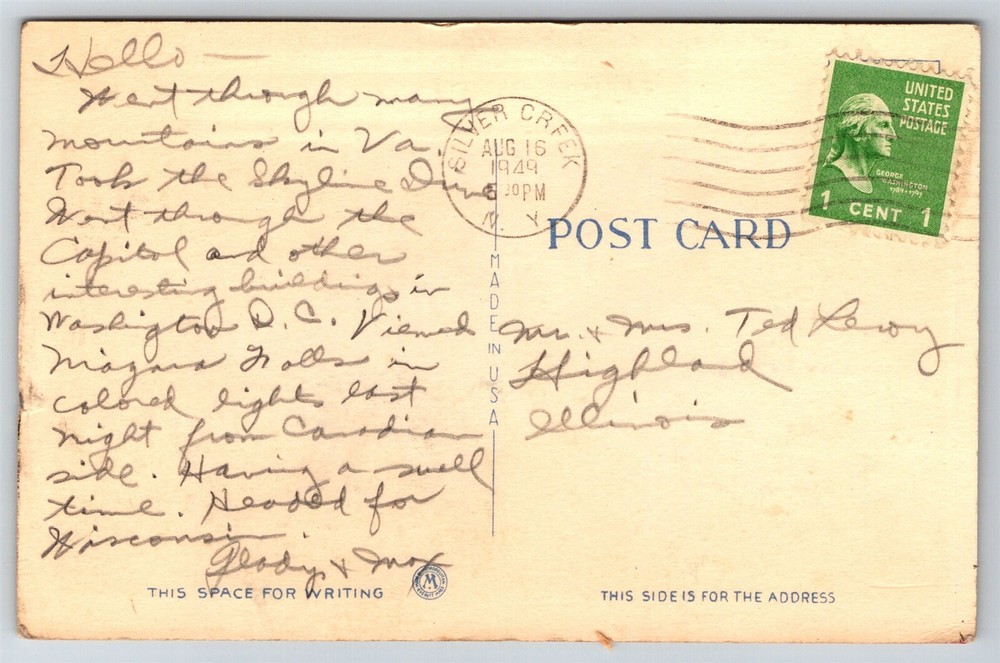 Hello —
Went through many
mountains in Va.
Took the Skyline Drive
Went through the
Capitol and other
interesting buildings in
Washington D.C. Viewed
Niagara Falls in
colored lights last
night from Canadian
side. Having a swell
time. Headed for
Wisconsin.
Gladys & Max
THIS SPACE FOR WRITING
SILVER CREEK
AUG 16
1949
5 30 PM
N. Y.
MADE IN USA
UNITED
STATES
POSTAGE
GEORGE
WASHINGTON
1789-1797
1 CENT 1
POST CARD
Mr. & Mrs. Ted Lewy
Highland
Illinois
THIS SIDE IS FOR THE ADDRESS